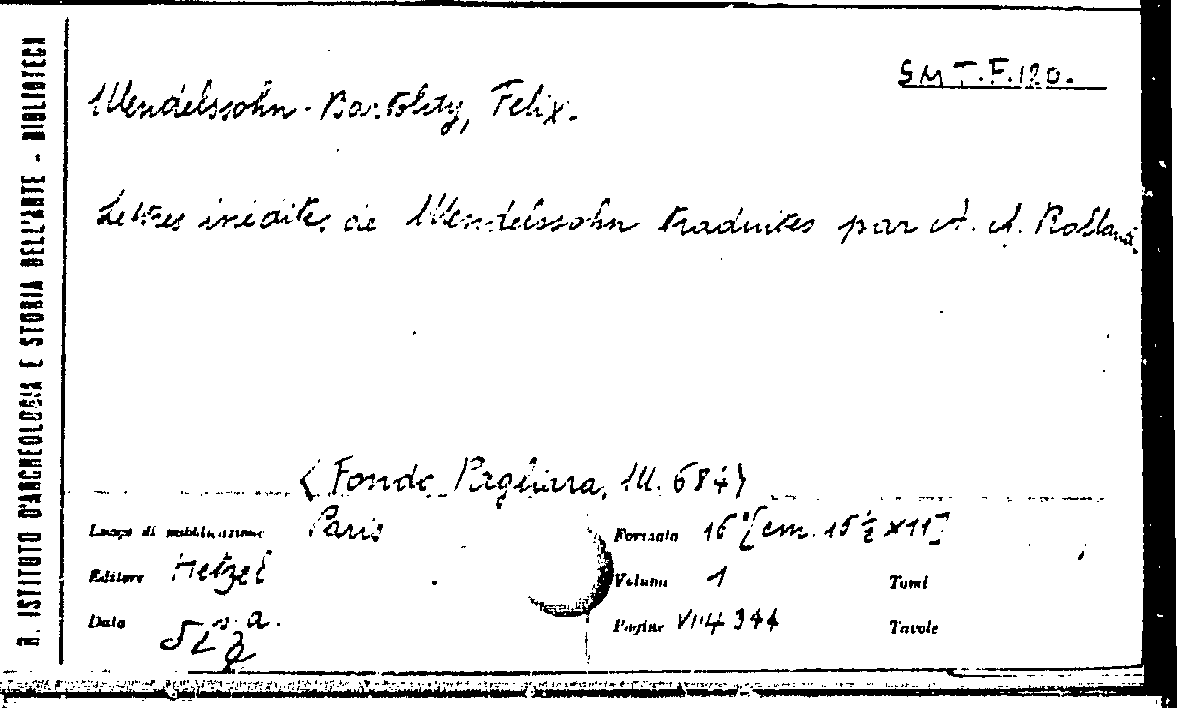 R. ISTITUTO D'ARCHEOLOGIA E STORIA DELL'ARTE - BIBLIOTECA
SMT.F.120.
Mendelssohn-Bartoldy, Felix.
Lettres inédites de Mendelssohn traduites par A. A. Rolland.
<Fondo Pagliara, M. 684>
Luogo di pubblicazione Paris
Editore Hetzel
Data s.a.
Formato 16° [cm. 15½ x 11]
Volumi 1 Tomi
Pagine 344 Tavole